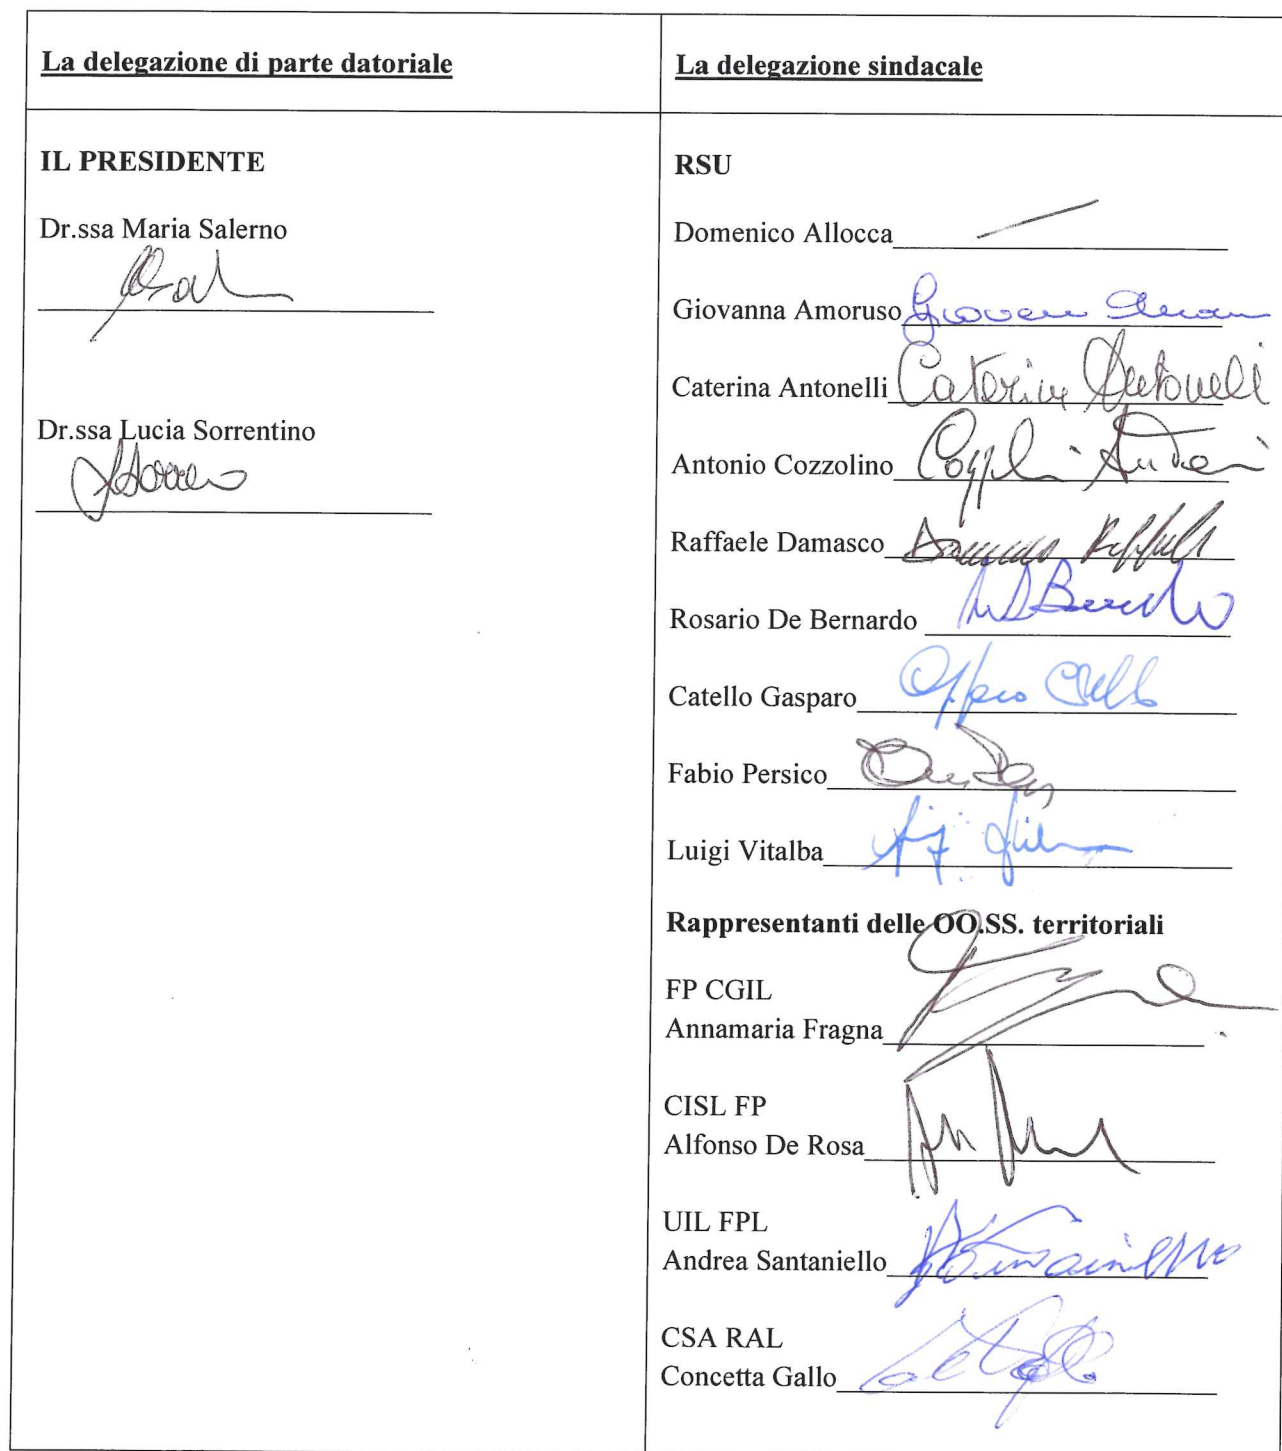 La delegazione di parte datoriale
IL PRESIDENTE
Dr.ssa Maria Salerno
Dr.ssa Lucia Sorrentino
La delegazione sindacale
RSU
Domenico Allocca
Giovanna Amoruso
Caterina Antonelli Caterina Antonelli
Antonio Cozzolino
Raffaele Damasco
Rosario De Bernardo
Catello Gasparo
Fabio Persico
Luigi Vitalba
Rappresentanti delle OO.SS. territoriali
FP CGIL
Annamaria Fragna
CISL FP
Alfonso De Rosa
UIL FPL
Andrea Santaniello
CSA RAL
Concetta Gallo